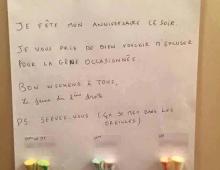 JE FÊTE MON ANNIVERSAIRE CE SOIR.
JE VOUS PRIE DE BIEN VOULOIR M'EXCUSER
POUR LA GÊNE OCCASIONNÉE.
BON WEEKEND À TOUS,
Le jeune du 2ème droite
PS: SERVEZ-VOUS (ÇA SE MET DANS LES
OREILLES)